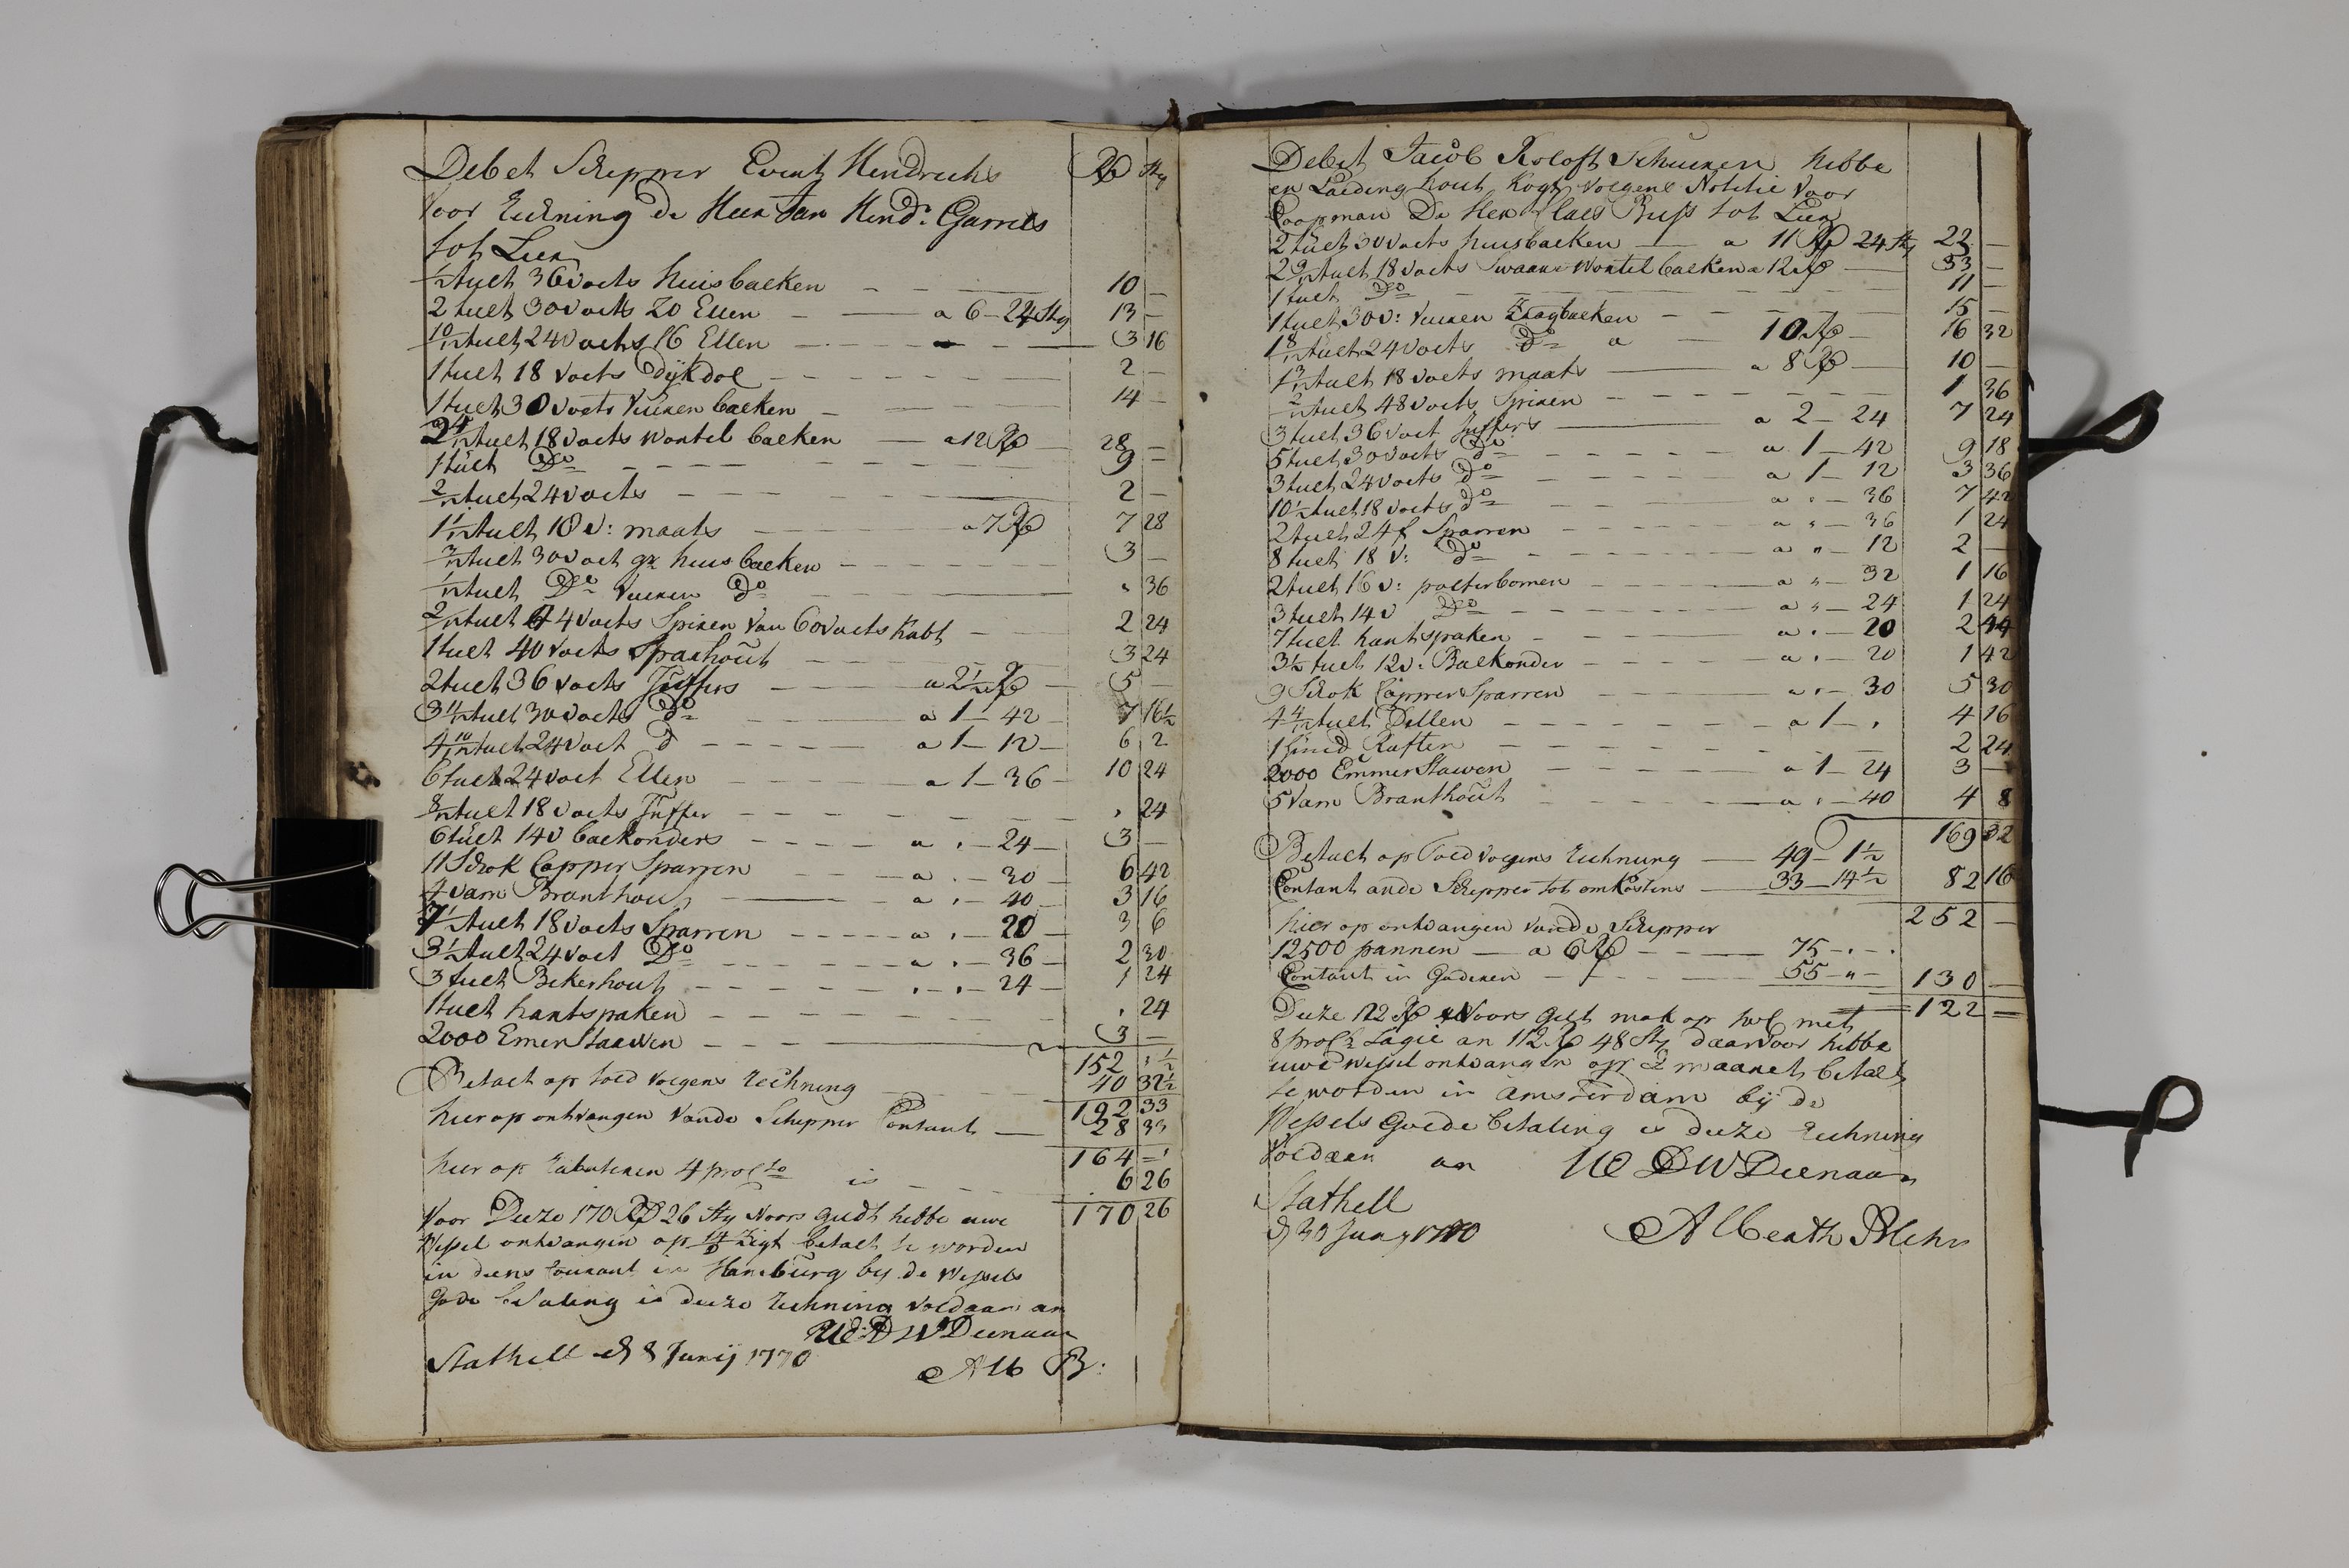 Debet Schipper Evert Hendricks Rd Sty
Voor Rekning de Heer Jan Hend: Garrels
tot Leer
1/2 tult 36 voets huisbalken 10 —
2 tult 30 voets 20 Ellen — a 6 — 24 Sty 13 —
10/12 tult 24 voets 16 Ellen 3 16
1 tult 18 voets Dijkdol 2 —
1 tult 30 voets Vueren balken 14 —
2 4/12 tult 18 voets wontel balken — a 12 Rd 28 —
1 tult Do 9 —
2/12 tult 24 voets 2 —
1 1/12 tult 18 v: maats — a 7 Rd 7 28
3/12 tult 30 voet gr huus balken 3 —
1/12 tult Do Vueren Do " 36
2/12 tult 44 voets Spiren van 60 voets Kabt 2 24
1 tult 40 voets Sparhout 3 24
2 tult 36 voets Juffers a 2 1/2 Rd 5 —
3 11/12 tult 30 voets do a 1 — 42 7 16 1/2
4 10/12 tult 24 voet d a 1 — 12 — 6 2
6 tult 24 voet Ellen a 1 — 36 10 24
8/12 tult 18 voets Juffer " 24
6 tult 14 v balkonders a " — 24 — 3 —
11 Schok Copper Sparren a " — 30 6 42
4 vam Branthout a " — 40 3 16
7 1/2 tult 18 voets Sparren a " — 20 3 6
3 1/2 tult 24 voet Do a " — 36 2 30
3 tult Bekerhout " " — 24 — 1 24
1 tult hantspaken " 24
2000 Emer Staaven 3 —
152 " 1/2
Betalt op toed volgens Rechning 40 32 1/2
192 33
hier op ontvangen vande Schipper Contant — 28 33
164 = "
hier op 4 procto is 6 26
170 26
Voor Deeze 170 Rd 26 Sty Noors geldt hebbe uwe
Wessel ontvangen op 14/d zigt betalt te worden
in deens Courant in Hamburg by de Wessels
gode betaling is deeze Rechning voldaan an
UE: D W Dienaar
Stathell d 8 Junij 1770
Alb B:
Debet Jacob Roloft Schueren hebbe
en Laeding hout Kogt volgens Notitie voor
Coopman De Heer Claes Buss tot Leer
2 tult 30 voets huusbalken — a 11 Rd 24 Sty 22 —
2 9/12 tult 18 voets Swaare Wontel balken a 12 Rd 33 —
1 tult Do 11 —
1 tult 30 v: Vueren Zaagbalken 15 —
1 8/12 tult 24 voets Do a 10 Rd — 16 32
1 3/12 tult 18 voets maats a 8 Rd 10 —
2/12 tult 48 voets Spiren 1 36
3 tult 36 voet Juffers a 2 — 24 7 24
5 tult 30 voets do a 1 — 42 9 18
3 tult 24 voets Do a 1 — 12 3 36
10 1/2 tult 18 voets do a " — 36 7 42
2 tult 24 f Sparren a " — 36 1 24
8 tult 18 v: do a " — 12 2 —
2 tult 16 v: polterbomen a " — 32 1 16
3 tult 14 v Do a " — 24 1 24
7 tult hantspaken a " — 20 2 44
3 1/2 tult 12 v: Balkonder a " — 20 1 42
9 Schok Copper Sparren a " — 30 5 30
4 4/12 tult Dellen a 1 — " 4 16
1 Rufter 2 24
2000 Emmer Stawen a 1 — 24 3 —
5 Vam Branthout a " — 40 4 8
169 32
Betalt op Toed volgens Rechnung 49 — 1 1/2
Contant ande Schipper tot omkostens 33 — 14 1/2 82 16
252 —
hier op ontvangen vande Schipper
12500 pannen — a 6 Rd 75 — " —
Contant in 55 — " — 130 —
Deeze 122 Rd Noors gelt mak op hol met 122 =
8 proct Lagie an 112 Rd 48 Sty daarvoor hebbe
uwe Wessel ontvangen op 2 maanet betalt
te worden in Amsterdam bij de
Wessels goede betaling is deeze Rechning
Voldaan an UE D W Dienaar
Stathell
d 30 Juny 1770 Alberth Blehr